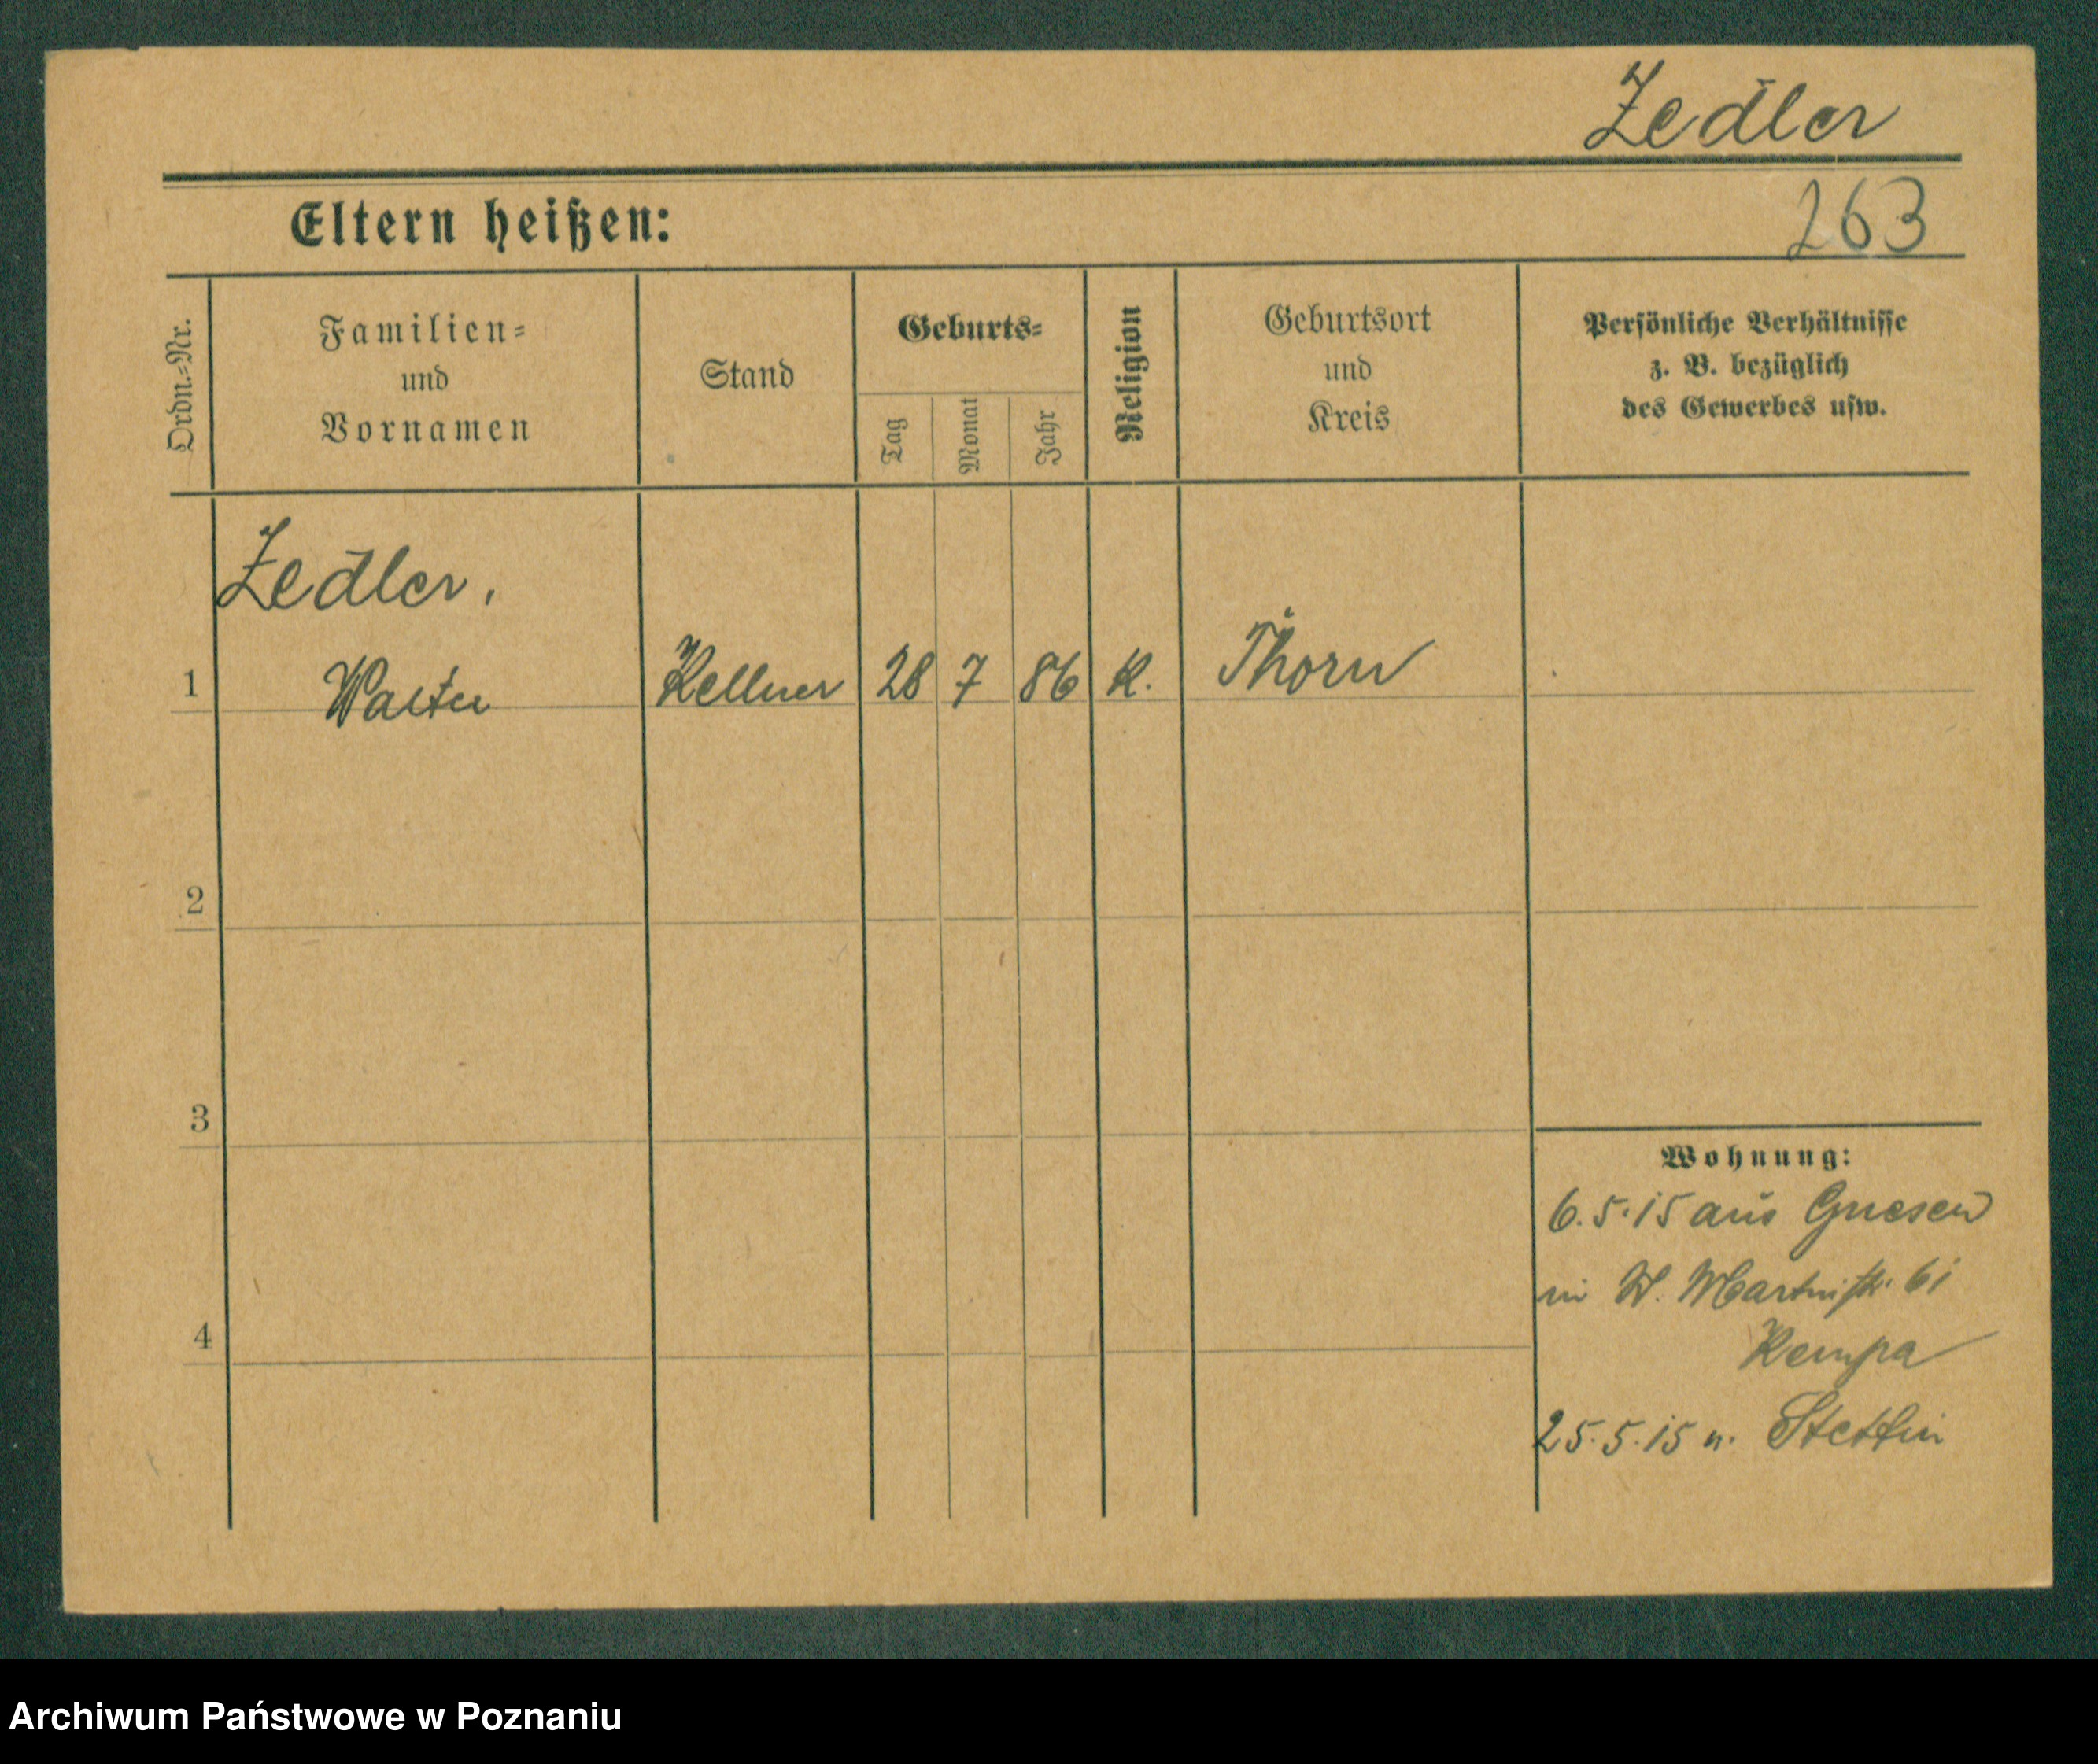 Zedler
Eltern heißen:
263
Ordn.=Nr.
Familien=
und
Vornamen
Stand
Geburts=
Tag
Monat
Jahr
Religion
Geburtsort
und
Kreis
Persönliche Verhältnisse
z. B. bezüglich
des Gewerbes usw.
Zedler,
1 Walter Kellner 28 7 86 K. Thorn
2
3
4
Wohnung:
6.5.15 aus Gnesen
W. Martinstr. 61
Kempa
25.5.15 n. Stettin
Archiwum Państwowe w Poznaniu